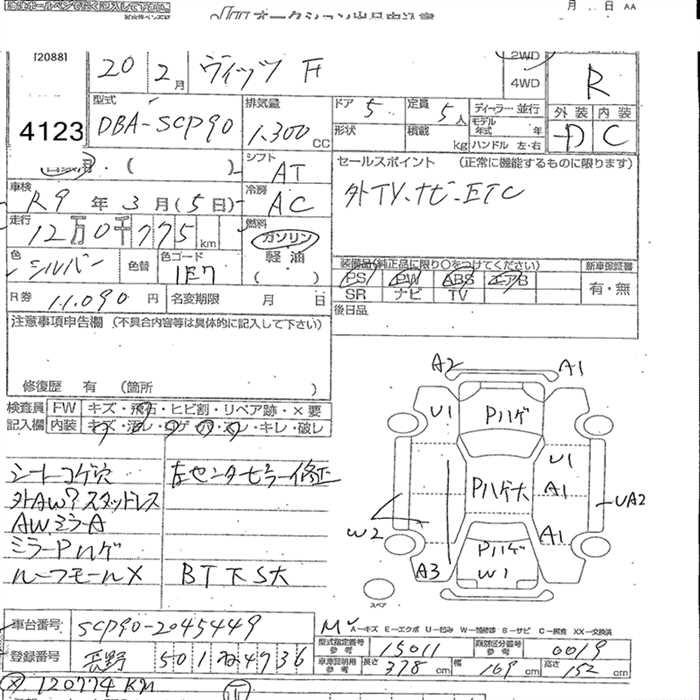 月 日 AA
オークション出品申込書
120881
20 2月 ヴィッツ F
2WD
4WD
R
4123
型式
DBA-SCP90
排気量
1.300 CC
ドア 5
定員 5人
ディーラー・並行
モデル年式 年
形状
積載 kg
ハンドル 左・右
外装 内装
D C
シフト
AT
セールスポイント (正常に機能するものに限ります)
外TV、ナビ、ETC
車検
R9 年 3 月 (5 日)
冷房
AC
走行
12万0千775 km
燃料
ガソリン
軽油
( )
色
シルバー
色替
色コード
1E7
装備品(純正品に限り○をつけてください)
新車保証書
PS PW ABS エアB
有・無
SR ナビ TV
R券 11.090 円
名変期限 月 日
後日品
注意事項申告欄 (不具合内容等は具体的に記入して下さい)
修復歴 有 (箇所 )
検査員 FW キズ・飛石・ヒビ割・リペア跡・×要
記入欄 内装 キズ・汚レ・コゲ・穴・スレ・キレ・破レ
シートコゲ穴
左センターピラー修正
外AW?スタッドレス
AW、ミラーA
ミラーPハゲ
ルーフモールX
BT下S大
A2 A1
U1 Pハゲ
U1
Pハゲ大 A1
UA2
W2
Pハゲ A1
A3 W1
スペア
車台番号 SCP90-2045449
A-キズ E-エクボ U-凹み W-補修跡 S-サビ C-腐食 XX-交換済
登録番号 長野 501 4736
型式指定番号 参考 15011
類別区分番号 参考 0019
車庫証明用 参考 長さ 378 cm 幅 169 cm 高さ 152 cm
120774 KM